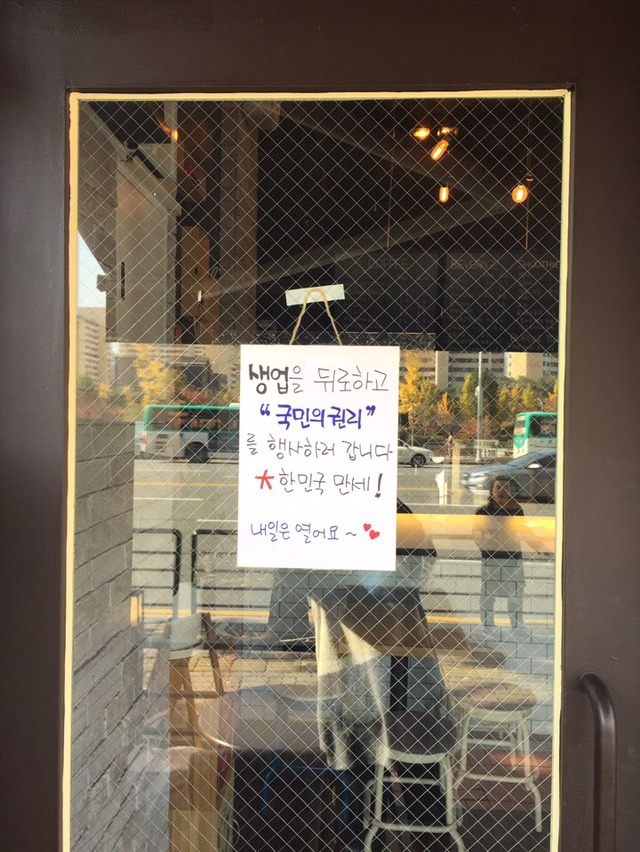 생업을 뒤로하고
“국민의권리”
를 행사하러 갑니다
*한민국 만세!
내일은 열어요~
BEVERAGE SMOOTHIE